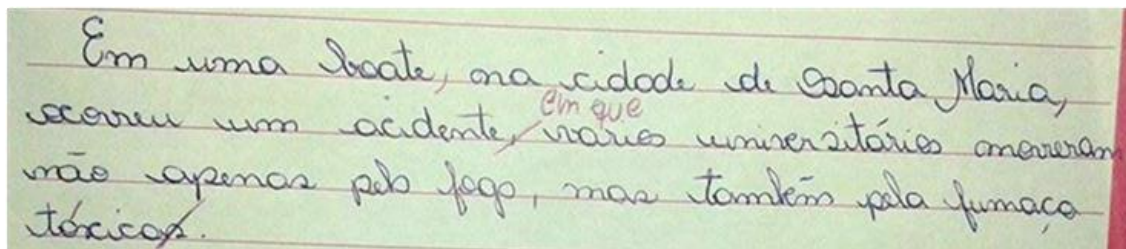 Em uma boate, na cidade de Santa Maria,
em que
ocorreu um acidente, vários universitários morreram
não apenas pelo fogo, mas também pela fumaça
tóxicas.